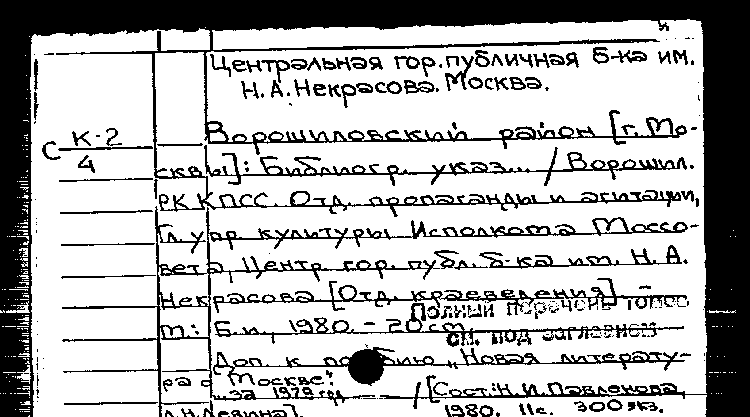 Центральная гор. публичная б-ка им.
Н. А. Некрасова. Москва.
С К-2
4
Ворошиловский район [г. Мо-
сквы]: Библиогр. указ... / Ворошил.
РК КПСС. Отд. пропаганды и агитации,
Гл. упр. культуры Исполкома Моссо-
вета, Центр. гор. публ. б-ка им. Н. А.
Некрасова [Отд. краеведения]. –
Полный перечень томов
М.: Б. и., 1980. – 20 см
см. под заглавием
Доп. к пособию „Новая литерату-
ра о Москве:
...за 1979 год / [Сост: Н. И. Павленова,
Левина].
1980. 11с. 300 экз.